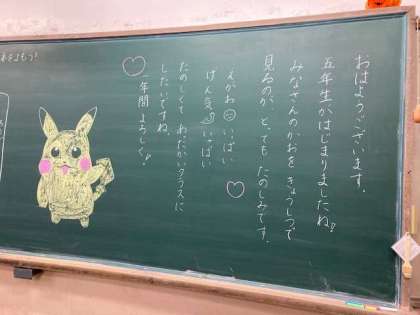 おはようございます。
五年生がはじまりましたね!!
みなさんのかおを きょうしつで
見るのが、とっても たのしみです。
えがお いっぱい
げん気 いっぱい
たのしくて あたたかいクラスに
したいですね。
一年間 よろしく!!